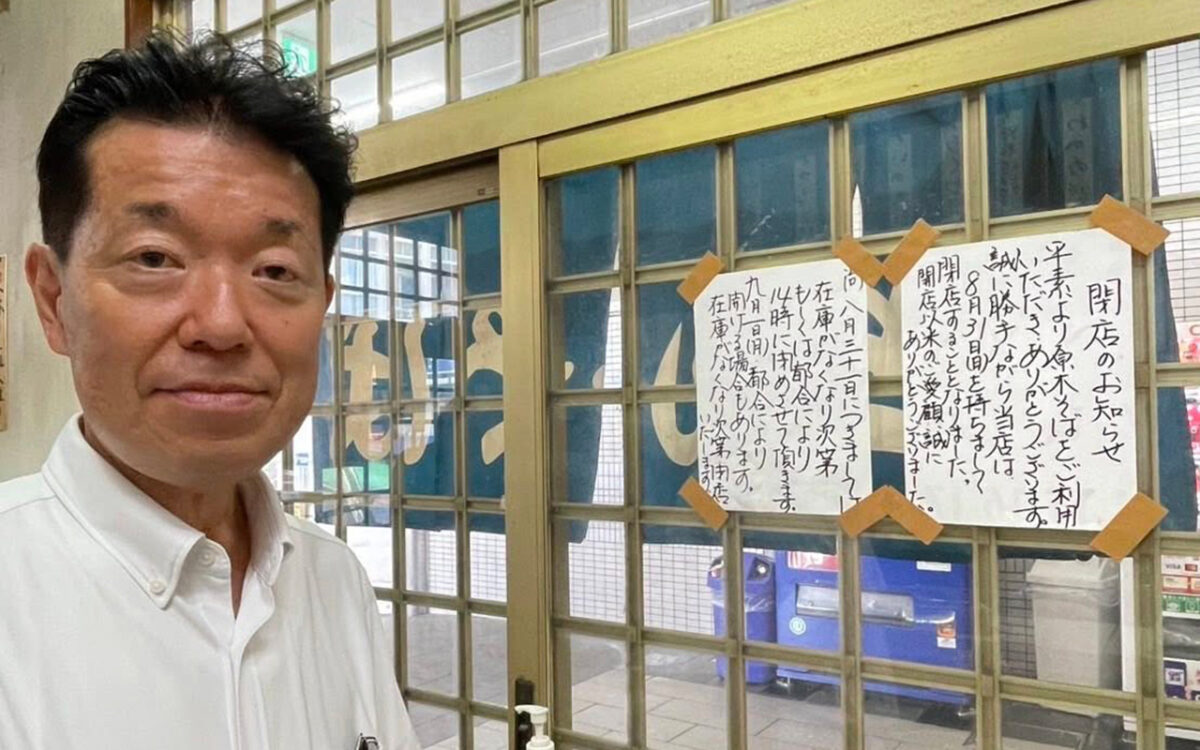 閉店のお知らせ
平素より原木そばをご利用
いただきありがとうございます。
誠に勝手ながら当店は
8月31日を持ちまして
閉店することとなりました。
開店以来のご愛顧誠に
ありがとうございました。
尚 八月三十一日につきまして
在庫がなくなり次第
もしくは都合により
14時に閉めさせて頂きます。
九月一日(月)都合により
開ける場合もあります。
在庫がなくなり次第閉店
いたします
VISA